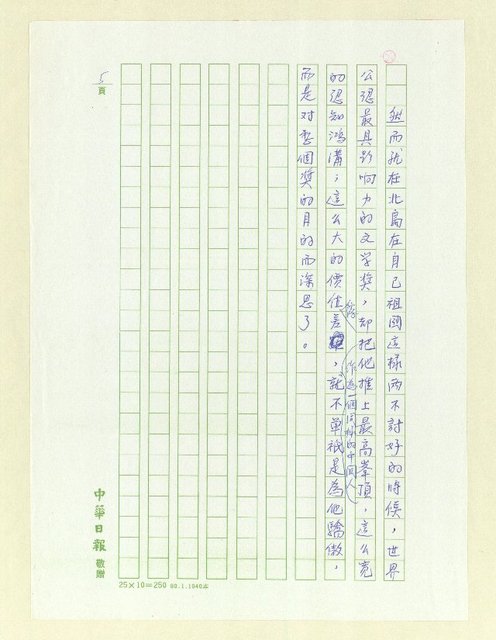 然而就在北島在自己祖國這樣兩不討好的時候，世界
公認最具影响力的文学獎，却把他推上最高峯頂，這么寬
的認知鴻溝；這么大的價值差，就不單祇是為他驕傲，
作為一個同樣的中国人
而是对整個獎的目的而深思了。
5頁
中華日報 敬贈
25×10=250 80.1.1040本